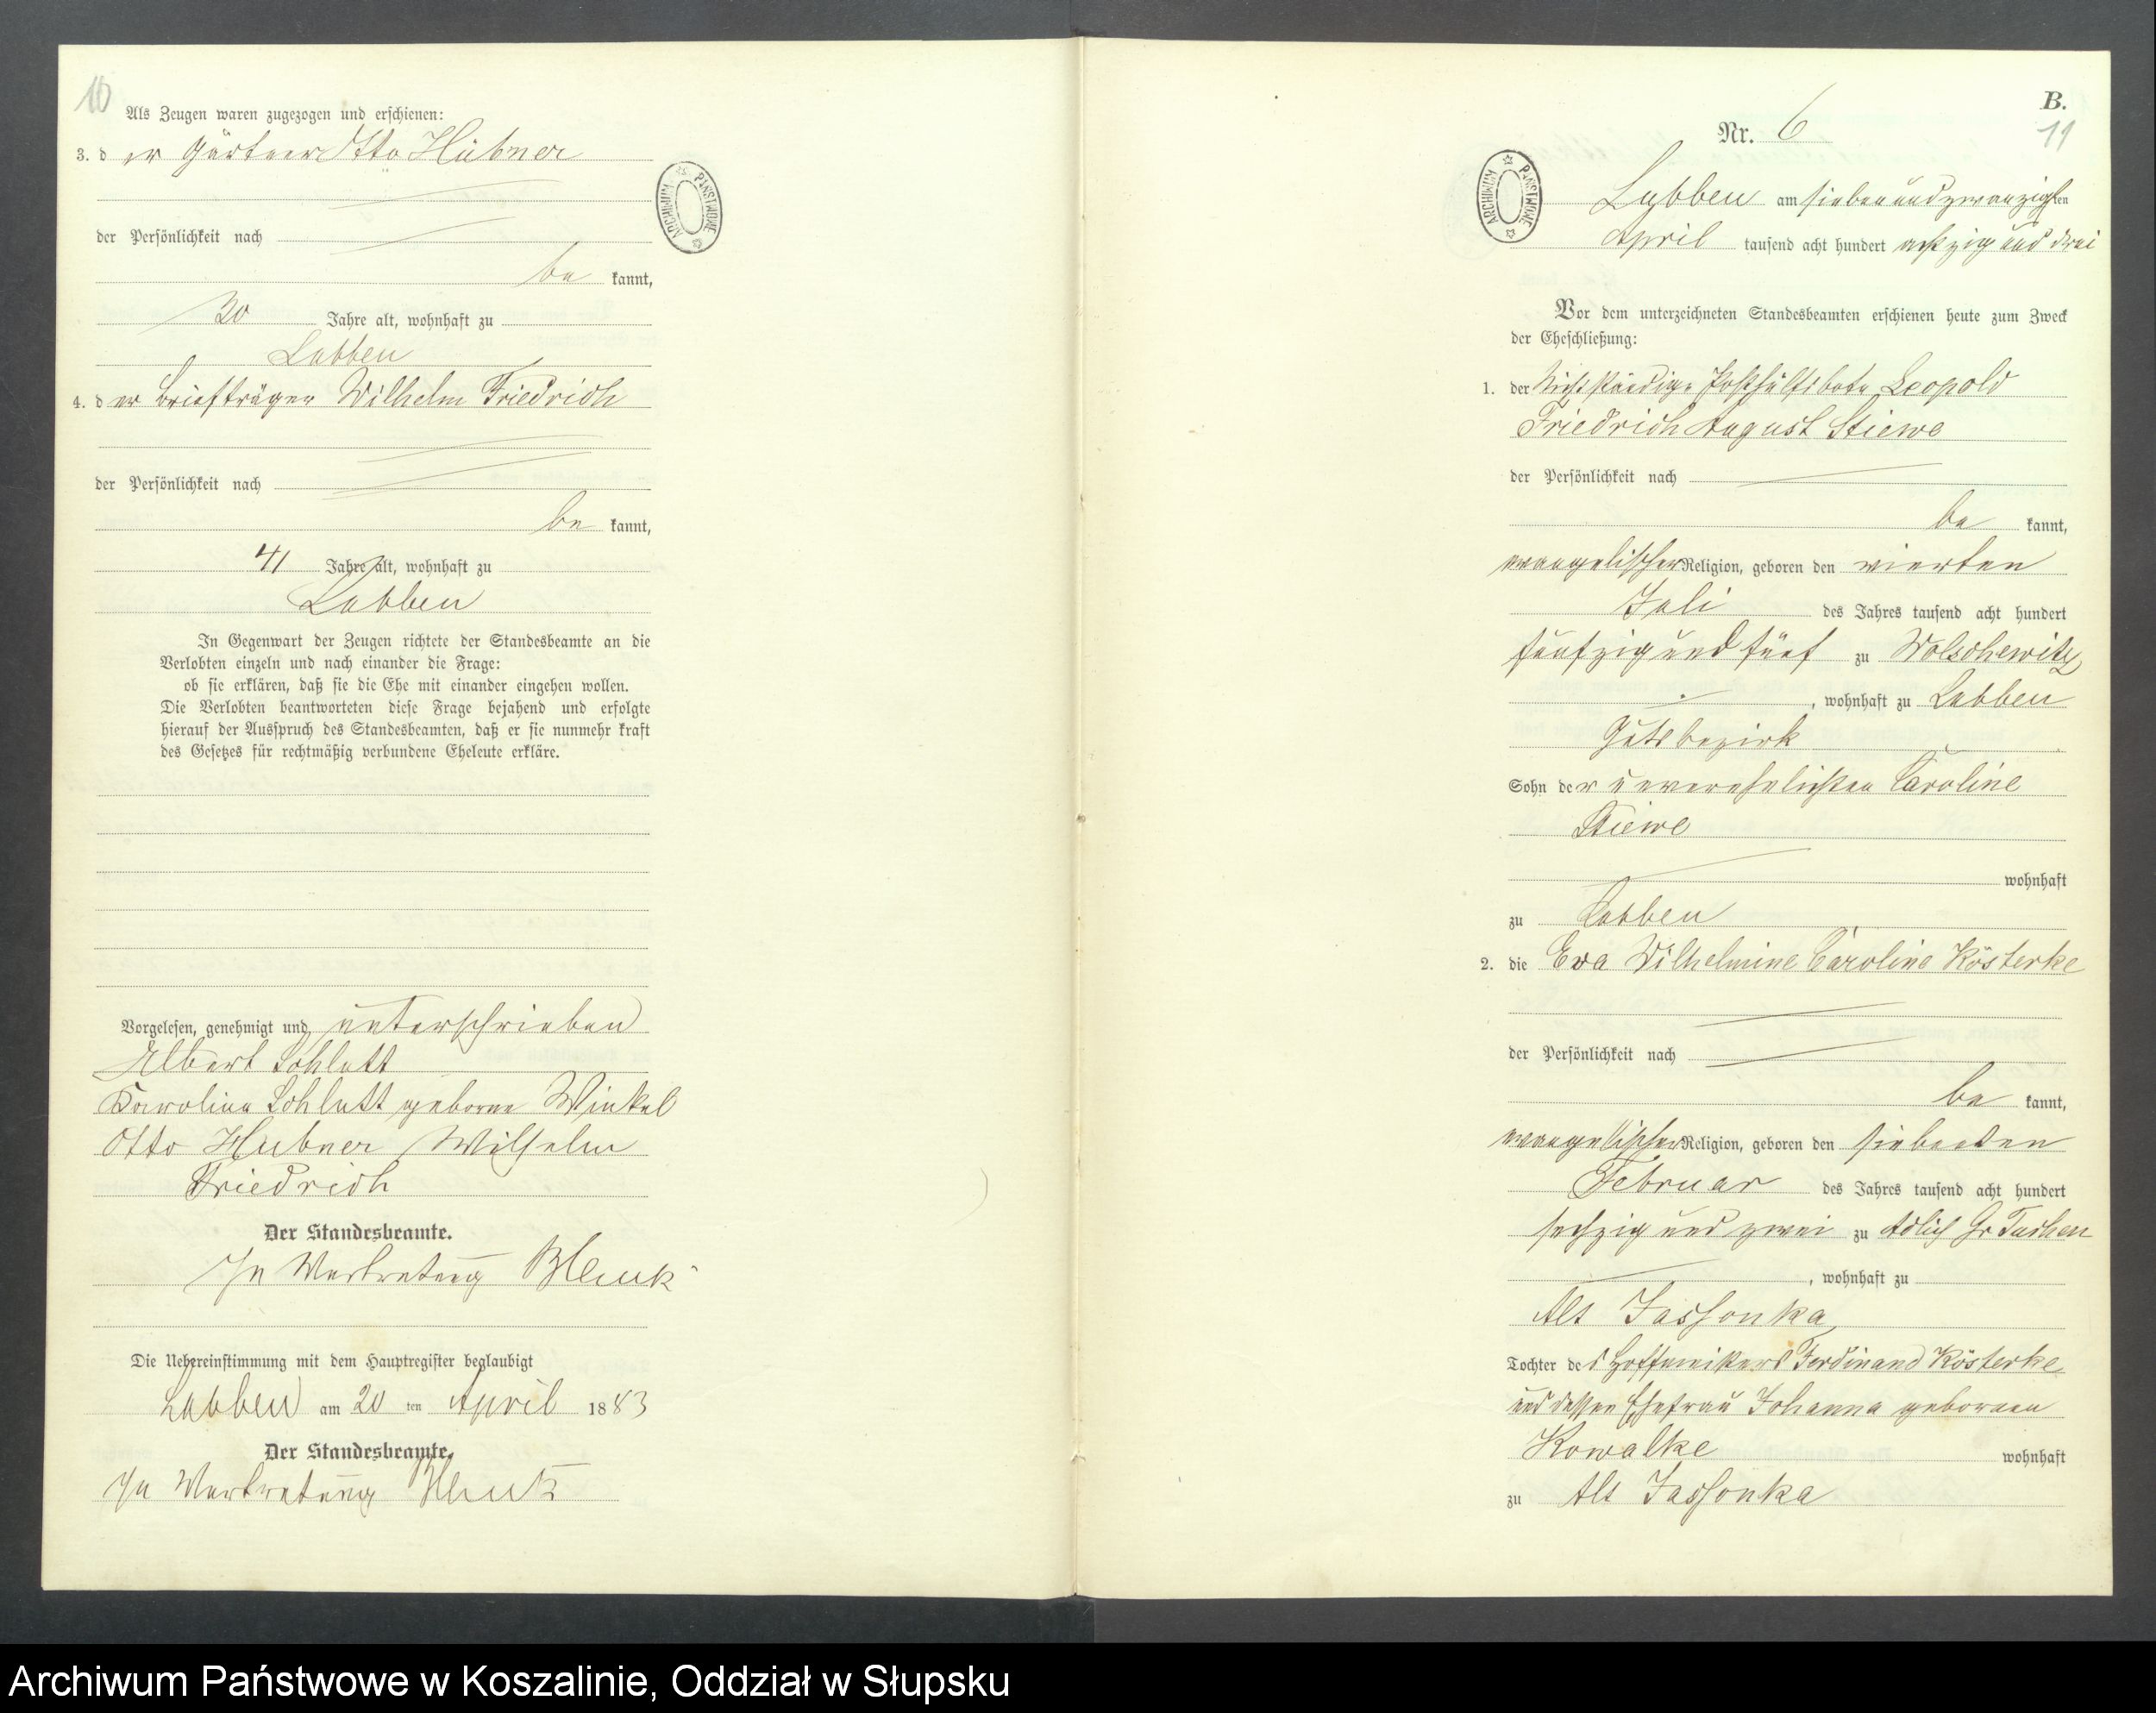 10
Als Zeugen waren zugezogen und erschienen:
3. d er Gärtner Otto Hübner
der Persönlichkeit nach
be kannt,
30 Jahre alt, wohnhaft zu
Labben
4. d er Briefträger Wilhelm Friedrich
der Persönlichkeit nach
be kannt,
41 Jahre alt, wohnhaft zu
Labben
In Gegenwart der Zeugen richtete der Standesbeamte an die
Verlobten einzeln und nach einander die Frage:
ob sie erklären, daß sie die Ehe mit einander eingehen wollen.
Die Verlobten beantworteten diese Frage bejahend und erfolgte
hierauf der Ausspruch des Standesbeamten, daß er sie nunmehr kraft
des Gesetzes für rechtmäßig verbundene Eheleute erkläre.
Vorgelesen, genehmigt und unterschrieben
Albert Schlutt
Karoline Schlutt geborne Winkel
Otto Hubner Wilhelm
Friedrich
Der Standesbeamte.
In Vertretung
Die Uebereinstimmung mit dem Hauptregister beglaubigt
Labben am 20 ten April 1883
Der Standesbeamte.
In Vertretung
ARCHIWUM PAŃSTWOWE
B.
11
Nr. 6
ARCHIWUM PAŃSTWOWE
Labben am siebenundzwanzigsten
April tausend acht hundert achtzig und drei
Vor dem unterzeichneten Standesbeamten erschienen heute zum Zweck
der Eheschließung:
1. der Nichtständige Posthülfsbote Leopold
Friedrich August Stiewe
der Persönlichkeit nach
be kannt,
evangelischer Religion, geboren den vierten
Juli des Jahres tausend acht hundert
fünfzig und fünf zu Wobschewitz
, wohnhaft zu Labben
Gutsbezirk
Sohn der unverehelichten Caroline
Stiewe
wohnhaft
zu Labben
2. die Eva Wilhelmine Caroline Kösterke
der Persönlichkeit nach
be kannt,
evangelischer Religion, geboren den siebenten
Februar des Jahres tausend acht hundert
sechzig und zwei zu Adlich Gr Tuchen
, wohnhaft zu
Alt Jassonka
Tochter des Hoffmeisters Ferdinand Kösterke
und dessen Ehefrau Johanna geborenen
Kowalke wohnhaft
zu Alt Jassonka
Archiwum Państwowe w Koszalinie, Oddział w Słupsku